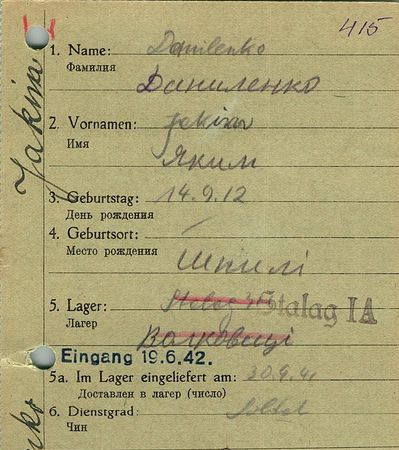 415
1. Name: Danilenko
Фамилия Даниленко
2. Vornamen: Jakim
Имя Яким
3. Geburtstag: 14.9.12
День рождения
4. Geburtsort:
Место рождения Шпилі
5. Lager: Stalag Stalag IA
Лагер
Eingang 19.6.42.
5a. Im Lager eingeliefert am: 30.9.41
Доставлен в лагер (число)
6. Dienstgrad: Soldat
Чин
Jakim
nko